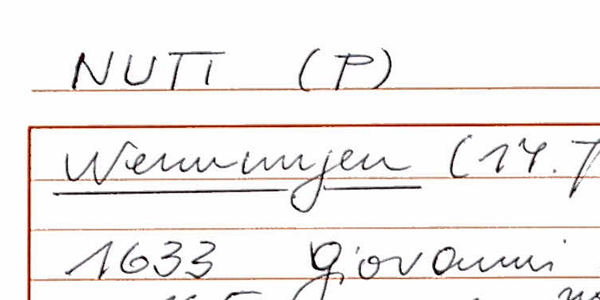 NUTI (P)
Wennungen (14.
1633 Giovanni